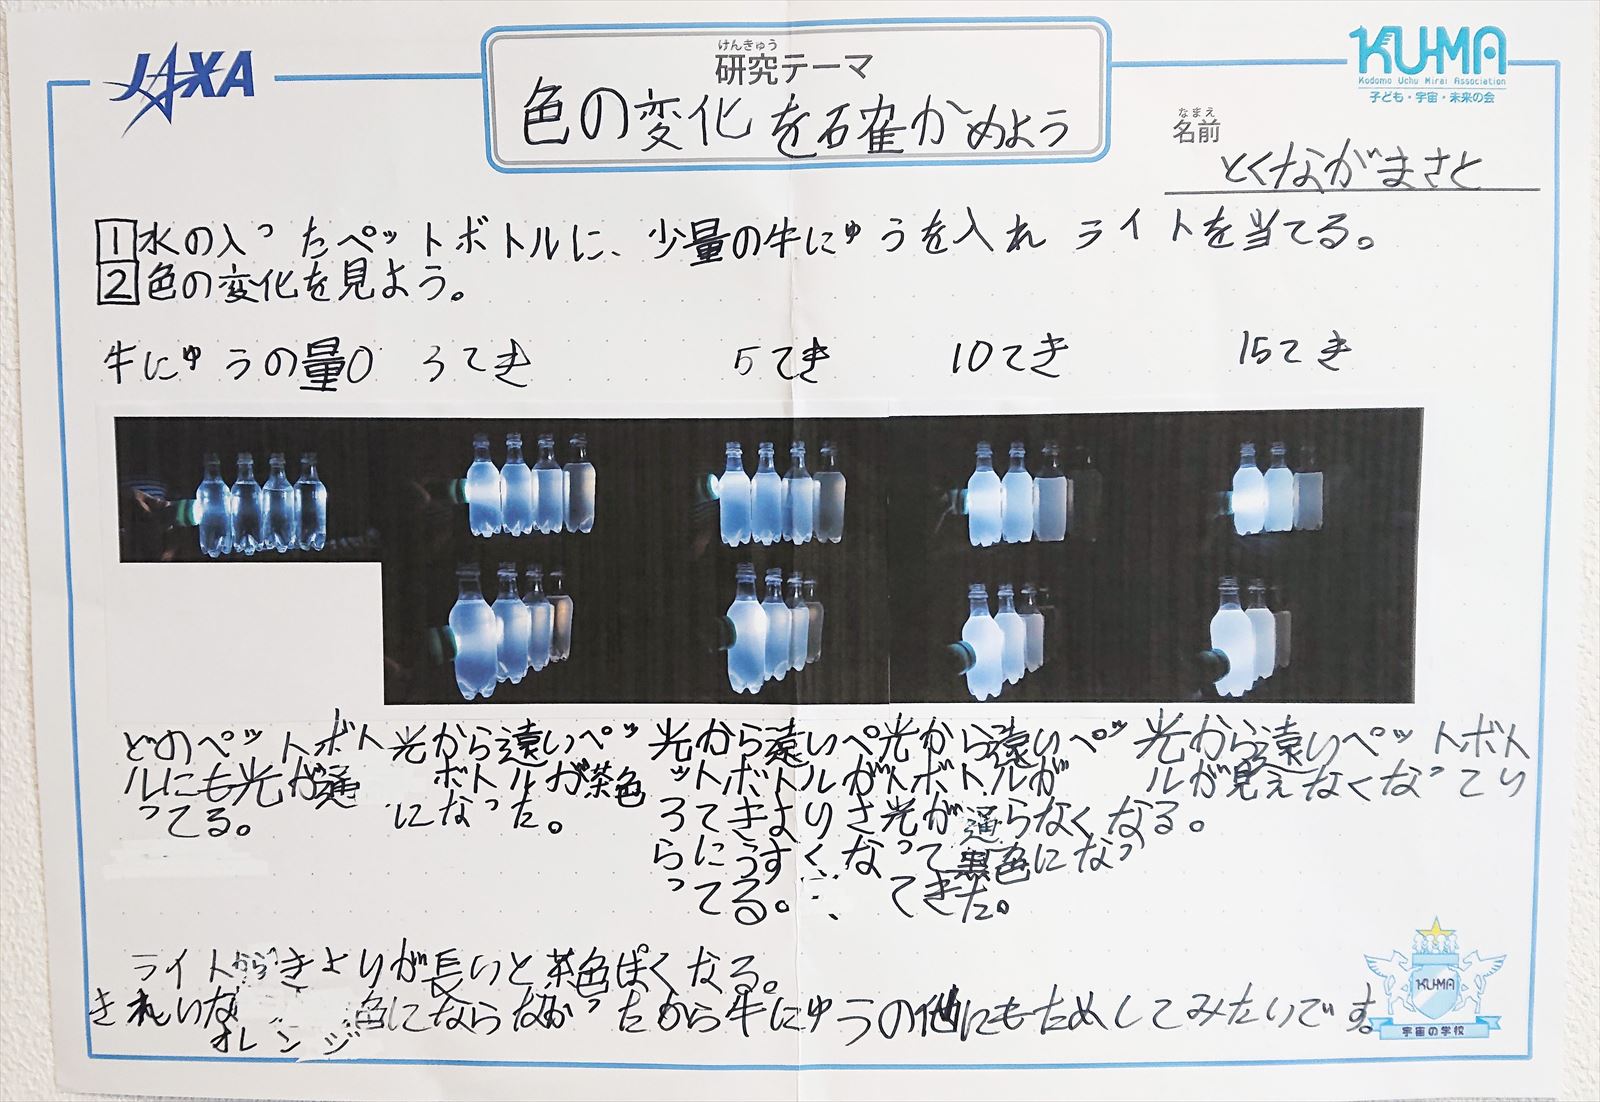 JAXA
けんきゅう
研究テーマ
色の変化を確かめよう
KU-MA
Kodomo Uchu Mirai Association
子ども・宇宙・未来の会
なまえ
名前
とくながまさと
1 水の入ったペットボトルに、少量の牛にゅうを入れ ライトを当てる。
2 色の変化を見よう。
牛にゅうの量0 3てき 5てき 10てき 15てき
どのペットボト
ルにも光が通
ってる。
光から遠いペッ
トボトルが茶色
になった。
光から遠いペ
ットボトルが
3てきよりさ
らにうすくなっ
ってる。
光から遠いペッ
トボトルが
光が通らなくなる。
黒色になっ
てきた。
光から遠いペットボト
ルが見えなくなってり
ライトからきょりが長いと茶色ぽくなる。
きれいなオレンジ色にならなかったから牛にゅうの他にもためしてみたいです。
KU-MA
宇宙の学校